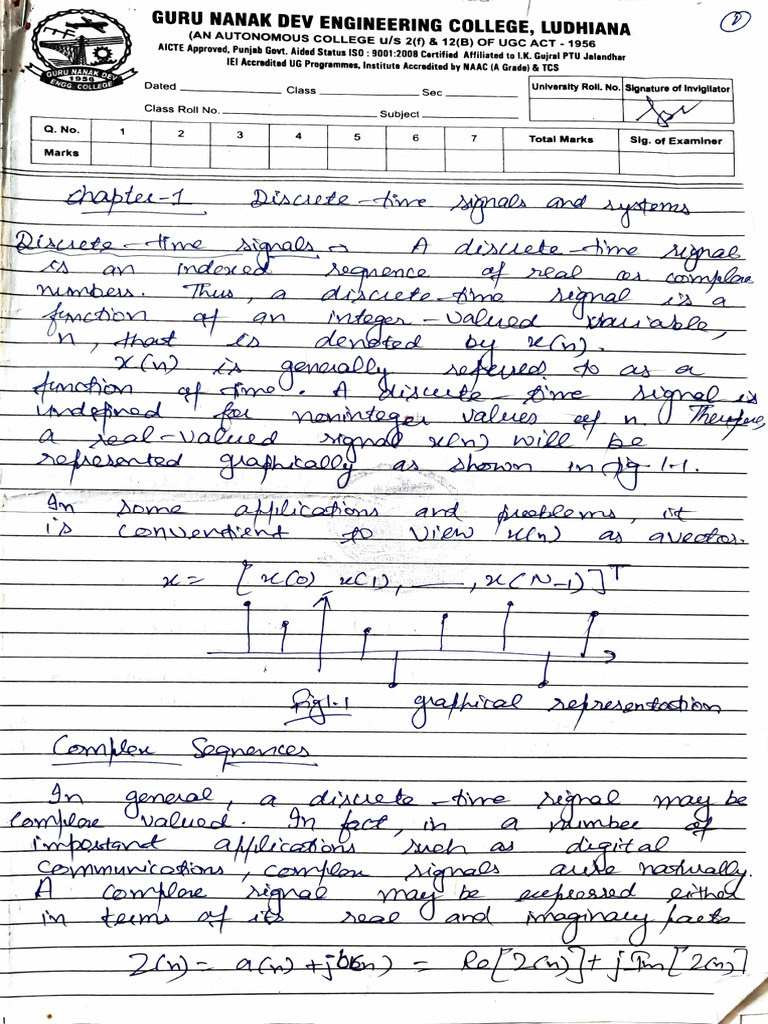 ①
GURU NANAK DEV ENGINEERING COLLEGE, LUDHIANA
(AN AUTONOMOUS COLLEGE u/s 2(f) & 12(B) OF UGC ACT - 1956
AICTE Approved, Punjab Govt. Aided Status ISO : 9001:2008 Certified Affiliated to I.K. Gujral PTU Jalandhar
IEI Accredited UG Programmes, Institute Accredited by NAAC (A Grade) & TCS
GURU NANAK DEV
1956
ENGG. COLLEGE
Dated Class Sec University Roll. No. Signature of Invigilator
Class Roll No. Subject
Q. No. 1 2 3 4 5 6 7 Total Marks Sig. of Examiner
Marks
Chapter-1 Discrete-time signals and systems
Discrete-time signals → A discrete-time signal
is an indexed sequence of real or complex
numbers. Thus, a discrete-time signal is a
function of an integer-valued variable,
n, that is denoted by x(n).
x(n) is generally referred to as a
function of time. A discrete-time signal is
undefined for noninteger values of n. Therefore,
a real-valued signal x(n) will be
represented graphically as shown in fig 1.1.
In some applications and problems, it
is convendient to view x(n) as a vector.
x = [x(0), x(1), ——, x(N-1)]ᵀ
Fig 1.1 graphical representation
Complex Sequences
In general, a discrete-time signal may be
complex valued. In fact, in a number of
important applications such as digital
communications, complex signals arise naturally.
A complex signal may be expressed either
in terms of its real and imaginary parts
Z(n) = a(n) + jb(n) = Re[Z(n)] + j Im[Z(n)]